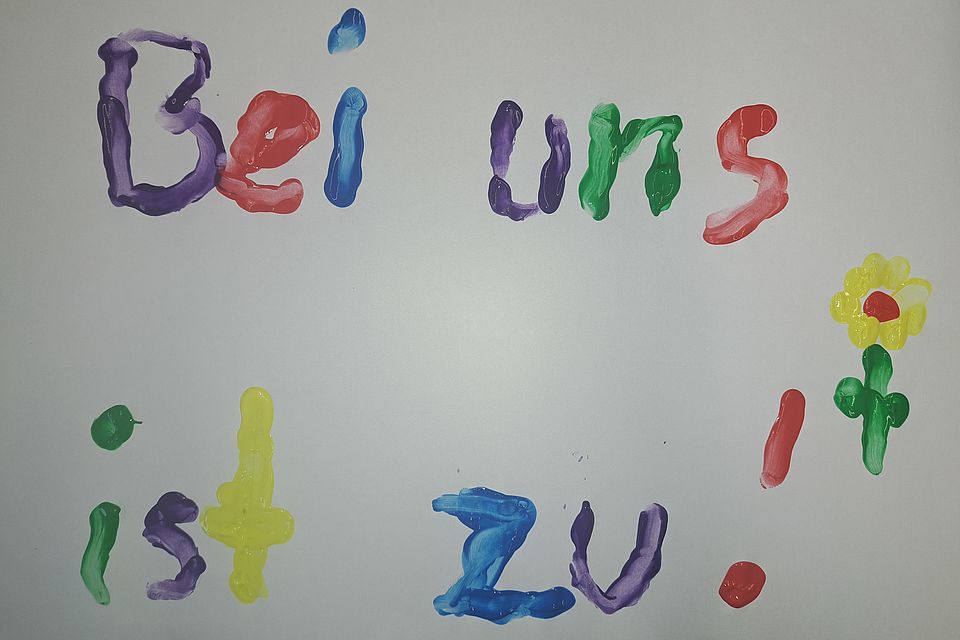 Bei uns
ist zu!